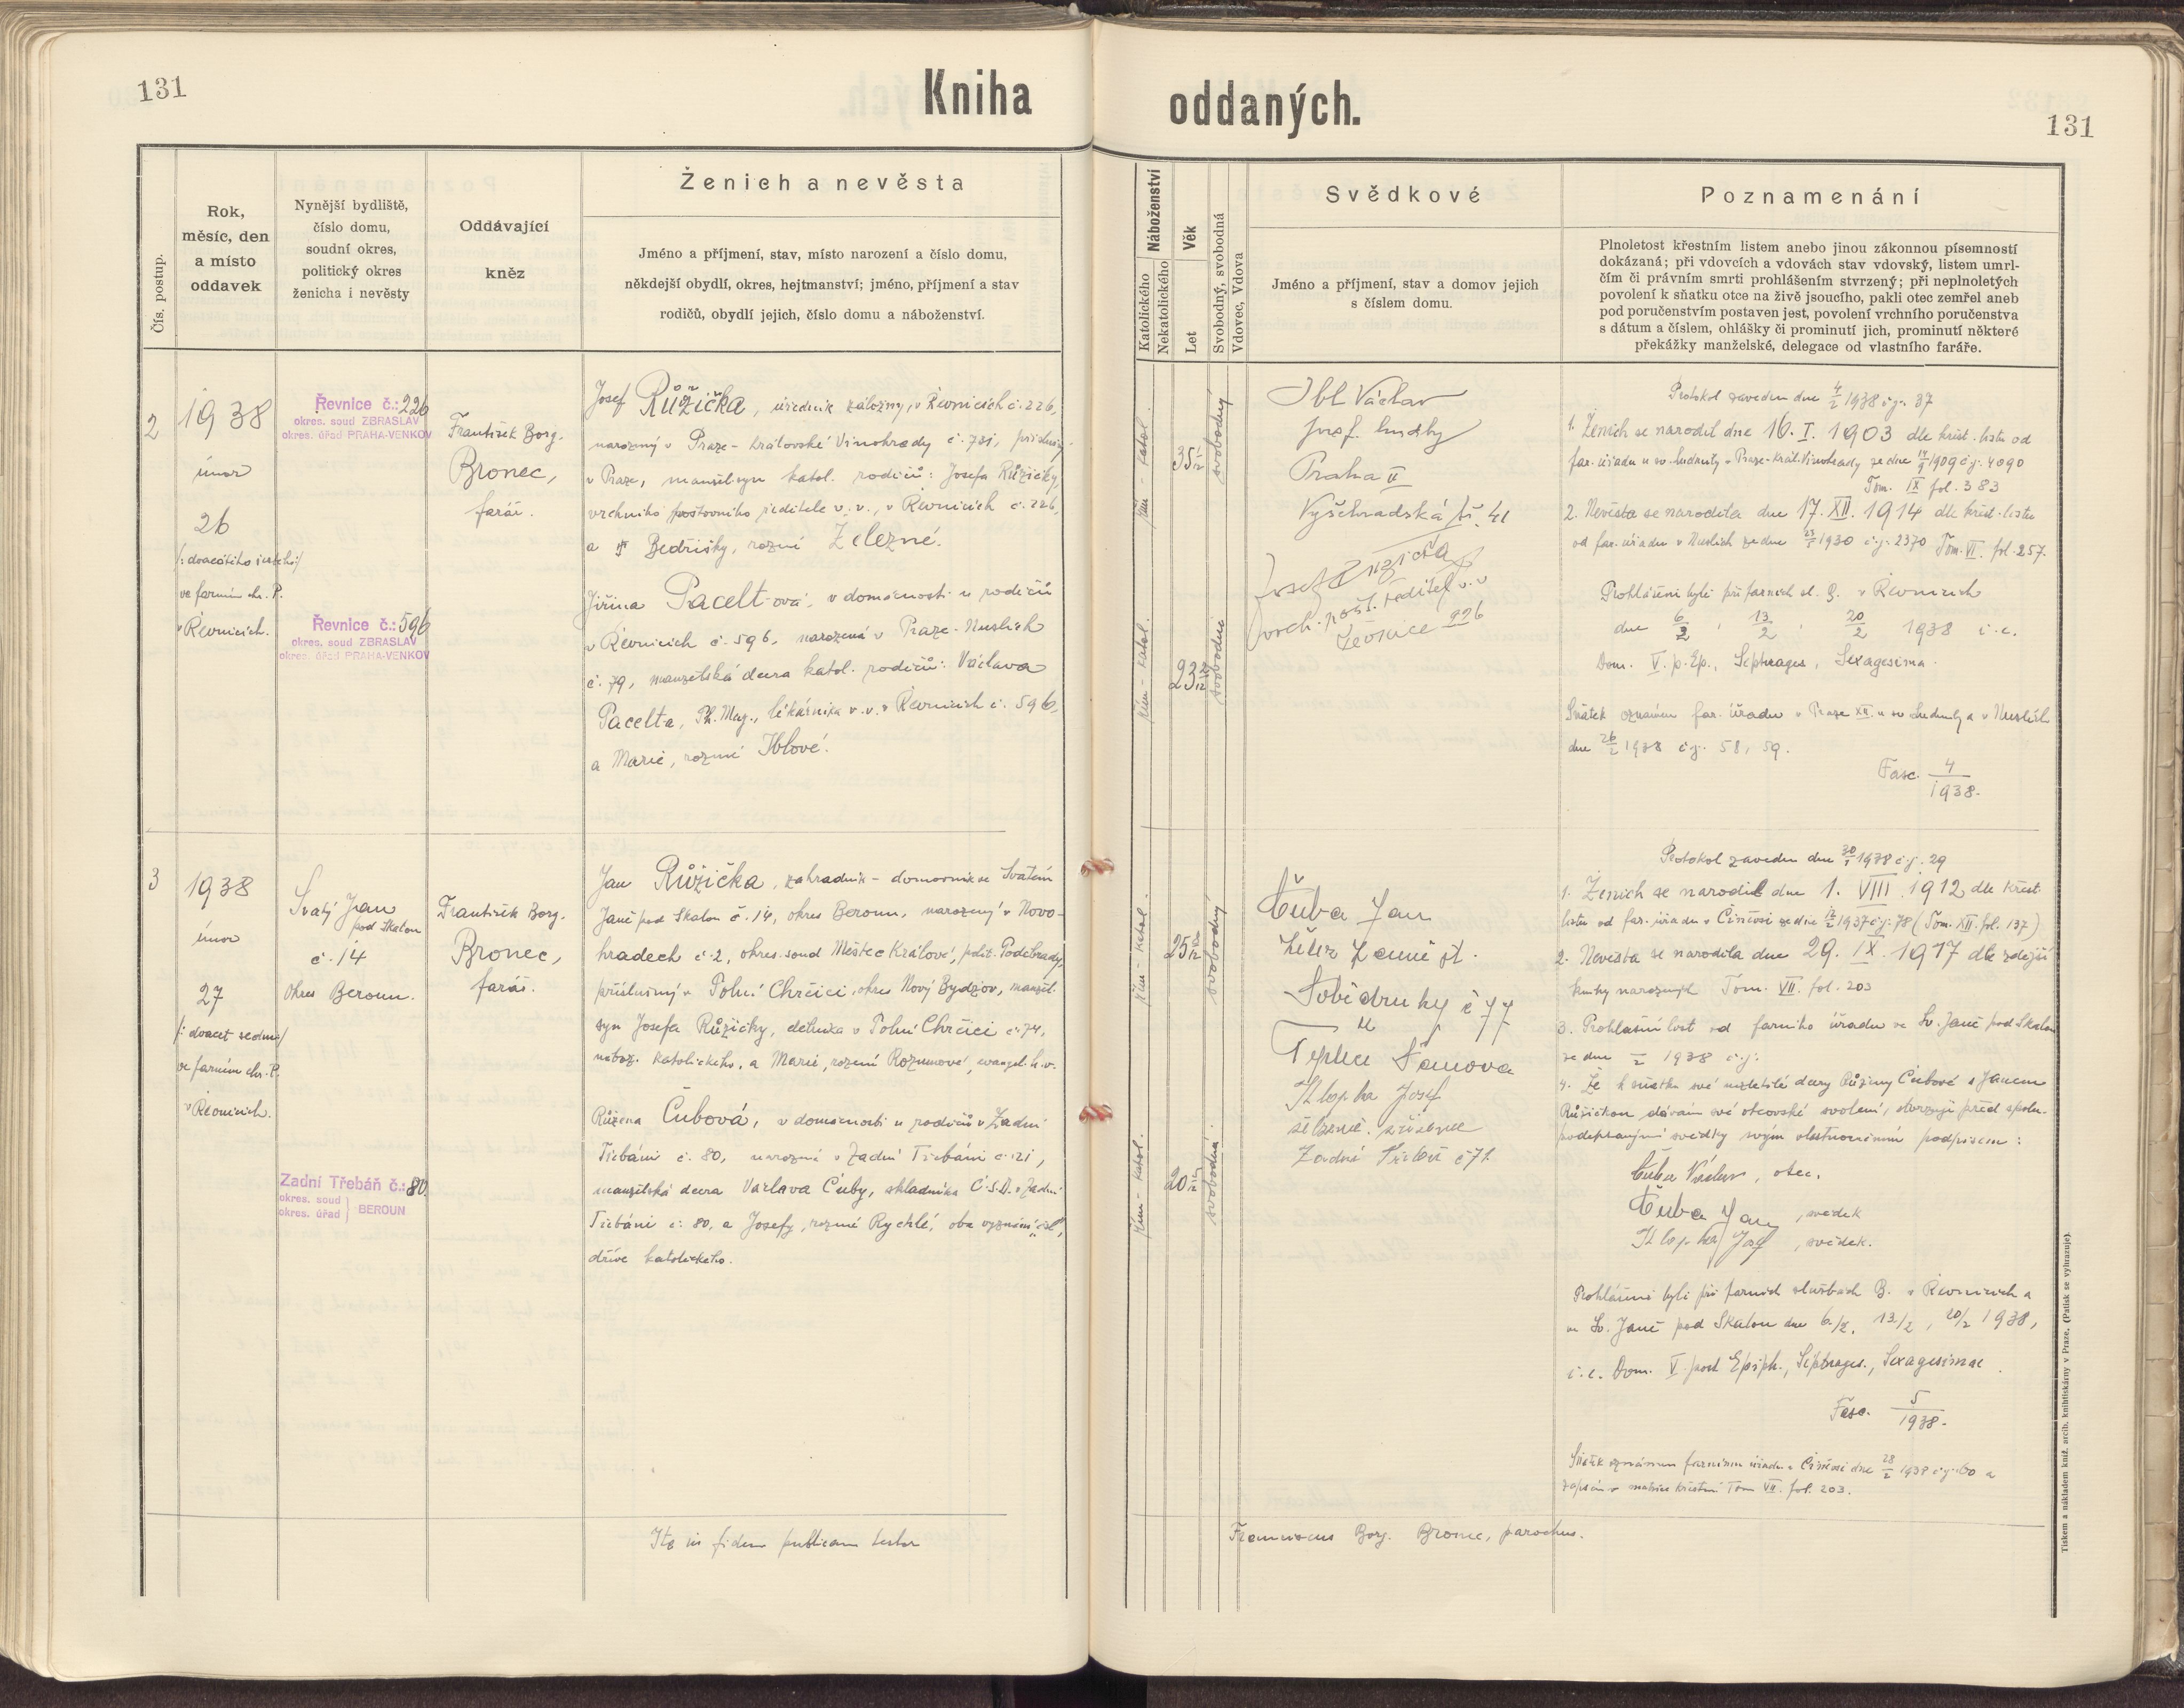 131
Kniha
oddaných.
131
Čís. postup.
Rok,
měsíc, den
a místo
oddavek
Nynější bydliště,
číslo domu,
soudní okres,
politický okres
ženicha i nevěsty
Oddávající
kněz
Ženich a nevěsta
Jméno a příjmení, stav, místo narození a číslo domu,
někdejší obydlí, okres, hejtmanství; jméno, příjmení a stav
rodičů, obydlí jejich, číslo domu a náboženství.
Náboženství
Katolického
Nekatolického
Věk
Let
Svobodný, svobodná
Vdovec, Vdova
Svědkové
Jméno a příjmení, stav a domov jejich
s číslem domu.
Poznamenání
Plnoletost křestním listem anebo jinou zákonnou písemností
dokázaná; při vdovcích a vdovách stav vdovský, listem umrl-
čím či právním smrti prohlášením stvrzený; při neplnoletých
povolení k sňatku otce na živě jsoucího, pakli otec zemřel aneb
pod poručenstvím postaven jest, povolení vrchního poručenstva
s dátum a číslem, ohlášky či prominutí jich, prominutí některé
překážky manželské, delegace od vlastního faráře.
2
1938
únor
26
/: dvacátého šestého :/
ve farním chr. P.
v Řevnicích.
Řevnice č.: 226
okres. soud ZBRASLAV
okres. úřad PRAHA-VENKOV
Řevnice č.: 596
okres. soud ZBRASLAV
okres. úřad PRAHA-VENKOV
František Borg.
Bronec,
farář.
Josef Růžička, úředník záložny, v Řevnicích č. 226,
narozený v Praze - Královské Vinohrady č. 781, příslušný
v Praze, manžel. syn katol. rodičů: Josefa Růžičky,
vrchního poštovního ředitele v. v., v Řevnicích č. 226,
a † Bedřišky, rozené Železné.
Jiřina Paceltová, v domácnosti u rodičů
v Řevnicích č. 596, narozená v Praze - Nuslích
č. 79, manželská dcera katol. rodičů: Václava
Pacelta, Ph. Mag., lékárníka v. v. v Řevnicích č. 596,
a Marie, rozené Iblové.
řím - katol.
35 1/12
svobodný
řím - katol.
23 2/12
svobodná
Ibl Václav
Praha II
Vyšehradská tř. 41
Josef Růžička
vrch. pošt. ředitel v. v
Řevnice 226
Protokol zaveden dne 4/2 1938 č.j. 37
1. Ženich se narodil dne 16. I. 1903 dle křest. listu od
far. úřadu u sv. Ludmily v Praze - Král. Vinohrady ze dne 14/9 1909 č.j. 4090
Tom. IX fol. 383
2. Nevěsta se narodila dne 17. XII. 1914 dle křest. listu
od far. úřadu v Nuslích ze dne 1930 č.j. 2370 Tom. VI. fol. 257.
Prohlášeni byli při farních sl. B. v Řevnicích
dne 6/2, 13/2, 20/2 1938 i. e.
Dom. V. p. Ep., Septuages., Sexagesima.
Sňatek oznámen far. úřadu v Praze XII. u sv. Ludmily a v Nuslích
dne 26/2 1938 č.j. 58, 59.
Fasc. 4/1938.
3
1938
únor
27
/: dvacet sedm :/
ve farním chr. P.
v Řevnicích.
Svatý Jan
pod Skalou
č. 14
Okres Beroun.
Zadní Třebáň č.: 80.
okres. soud
okres. úřad } BEROUN
František Borg.
Bronec,
farář.
Jan Růžička, zahradník - domovník ve Svatém
Janě pod Skalou č. 14, okres Beroun, narozený v Novo-
hradech č. 2, okres. soud Městec Králové, polit. Poděbrady,
příslušný v Polní Chrčici, okres Nový Bydžov, manžel.
syn Josefa Růžičky, dělníka v Polní Chrčici č. 74,
nábož. katolického, a Marie, rozené Rozumové, evangel. h. v.
Růžena Čubová, v domácnosti u rodičů v Zadní
Třebáni č. 80, narozená v Zadní Třebáni č. 121,
manželská dcera Václava Čuby, skladníka Č.S.D. v Zadní
Třebáni č. 80, a Josefy, rozené Rychlé, oba vyznání čsl.,
dříve katolického.
řím - katol.
25
svobodný
řím - katol.
20
svobodná
Čuba Jan
Sobědruhy č 77
U
Teplice Šanova
Klapka Josef
železnič. zřízenec
Zadní Třebáň č 71.
Protokol zaveden dne 30/1 1938 č.j. 29
1. Ženich se narodil dne 1. VIII. 1912 dle křest.
listu od far. úřadu v Činěvsi ze dne 1937 č.j. 78 (Tom. XII. fol. 137)
2. Nevěsta se narodila dne 29. IX. 1917 dle zdejší
knihy narozených Tom. VII. fol. 203
3. Prohlašní list od farního úřadu ve Sv. Janě pod Skalou
ze dne /2 1938 č.j.
4. Že k sňatku své nezletilé dcery Růženy Čubové s Janem
Růžičkou dávám své otcovské svolení, stvrzuji před spolu-
podepsanými svědky svým vlastnoručním podpisem:
Čuba Václav, otec.
Čuba Jan, svědek
Klapka Josef, svědek.
Prohlášeni byli při farních službách B. v Řevnicích a
ve Sv. Janě pod Skalou dne 6./2., 13./2, 20/2 1938,
i. e. Dom. V. post Epiph., Septuages., Sexagesimae.
Fasc. 5/1938.
Sňatek oznámen farnímu úřadu v Činěvsi dne 28/2 1938 č.j. 60 a
zapsán v matrice křestní Tom VII. fol. 203.
Ita in fidem publicam testor
Franciscus Borg. Bronec, parochus.
Tiskem a nákladem kníž. arcib. knihtiskárny v Praze. (Patisk se vyhrazuje).